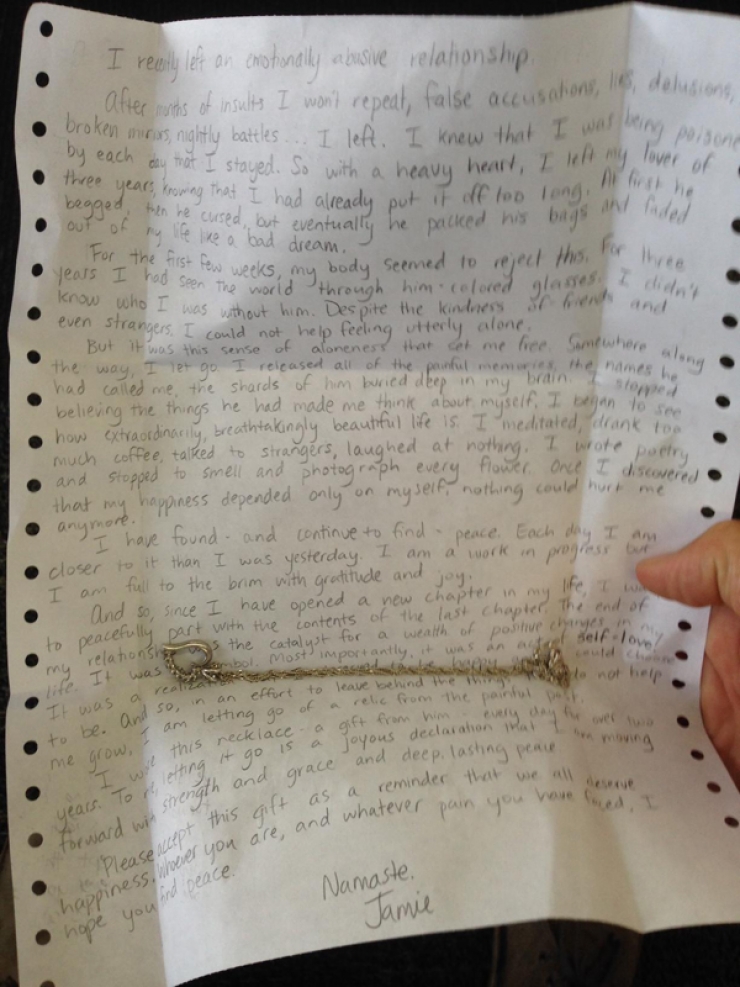 I recently left an emotionally abusive relationship.
After months of insults I won't repeat, false accusations, lies, delusions,
broken mirrors, nightly battles... I left. I knew that I was being poisone
by each day that I stayed. So with a heavy heart, I left my lover of
three years, knowing that I had already put it off too long. At first he
begged, then he cursed, but eventually he packed his bags and faded
out of my life like a bad dream.
For the first few weeks, my body seemed to reject this. For three
years I had seen the world through him-colored glasses. I didn't
know who I was without him. Despite the kindness of friends and
even strangers, I could not help feeling utterly alone.
But it was this sense of aloneness that set me free. Somewhere along
the way, I let go. I released all of the painful memories, the names he
had called me, the shards of him buried deep in my brain. I stopped
believing the things he had made me think about myself. I began to see
how extraordinarily, breathtakingly beautiful life is. I meditated, drank too
much coffee, talked to strangers, laughed at nothing. I wrote poetry
and stopped to smell and photograph every flower. Once I discovered
that my happiness depended only on myself, nothing could hurt me
anymore.
I have found - and continue to find - peace. Each day I am
closer to it than I was yesterday. I am a work in progress but
I am full to the brim with gratitude and joy.
And so, since I have opened a new chapter in my life, I
to peacefully part with the contents of the last chapter. The end of
my relationsh the catalyst for a wealth of positive changes in my
life. It was mbol. Most importantly, it was an act of self-love.
It was a realiza to be happy could choose
to be. And so, in an effort to leave behind the things do not help
me grow, I am letting go of a relic from the painful past.
I wore this necklace - a gift from him - every day for over two
years. To me, letting it go is a joyous declaration that I am moving
forward with strength and grace and deep, lasting peace.
Please accept this gift as a reminder that we all deserve
happiness. Whoever you are, and whatever pain you have faced, I
hope you find peace.
Namaste.
Jamie